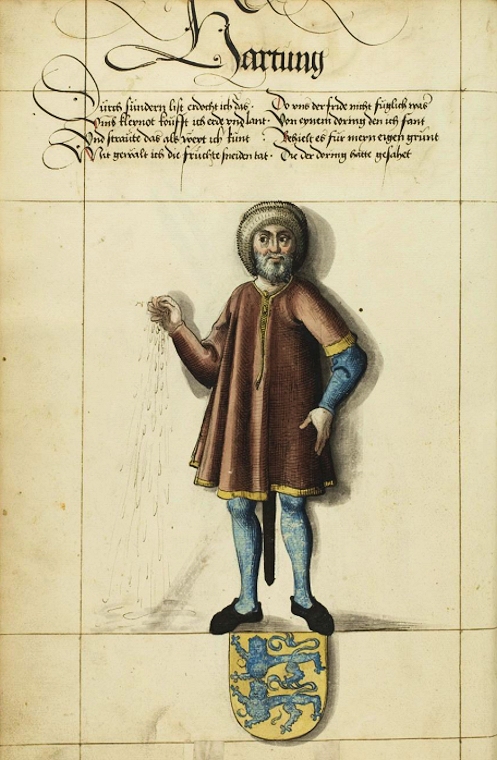 Hartung
Durch sundern list erdocht ich das · Do vns der fride nicht füglich was
Vmb kleynot koufft ich erde vnd lant · Von eynem doring den ich fant
Vnd straute das als wert ich kunt · Behielt es für mein eigen grunt
Mit gewalt ich die früchte sneiden tat · Die der doring hatte gesahet